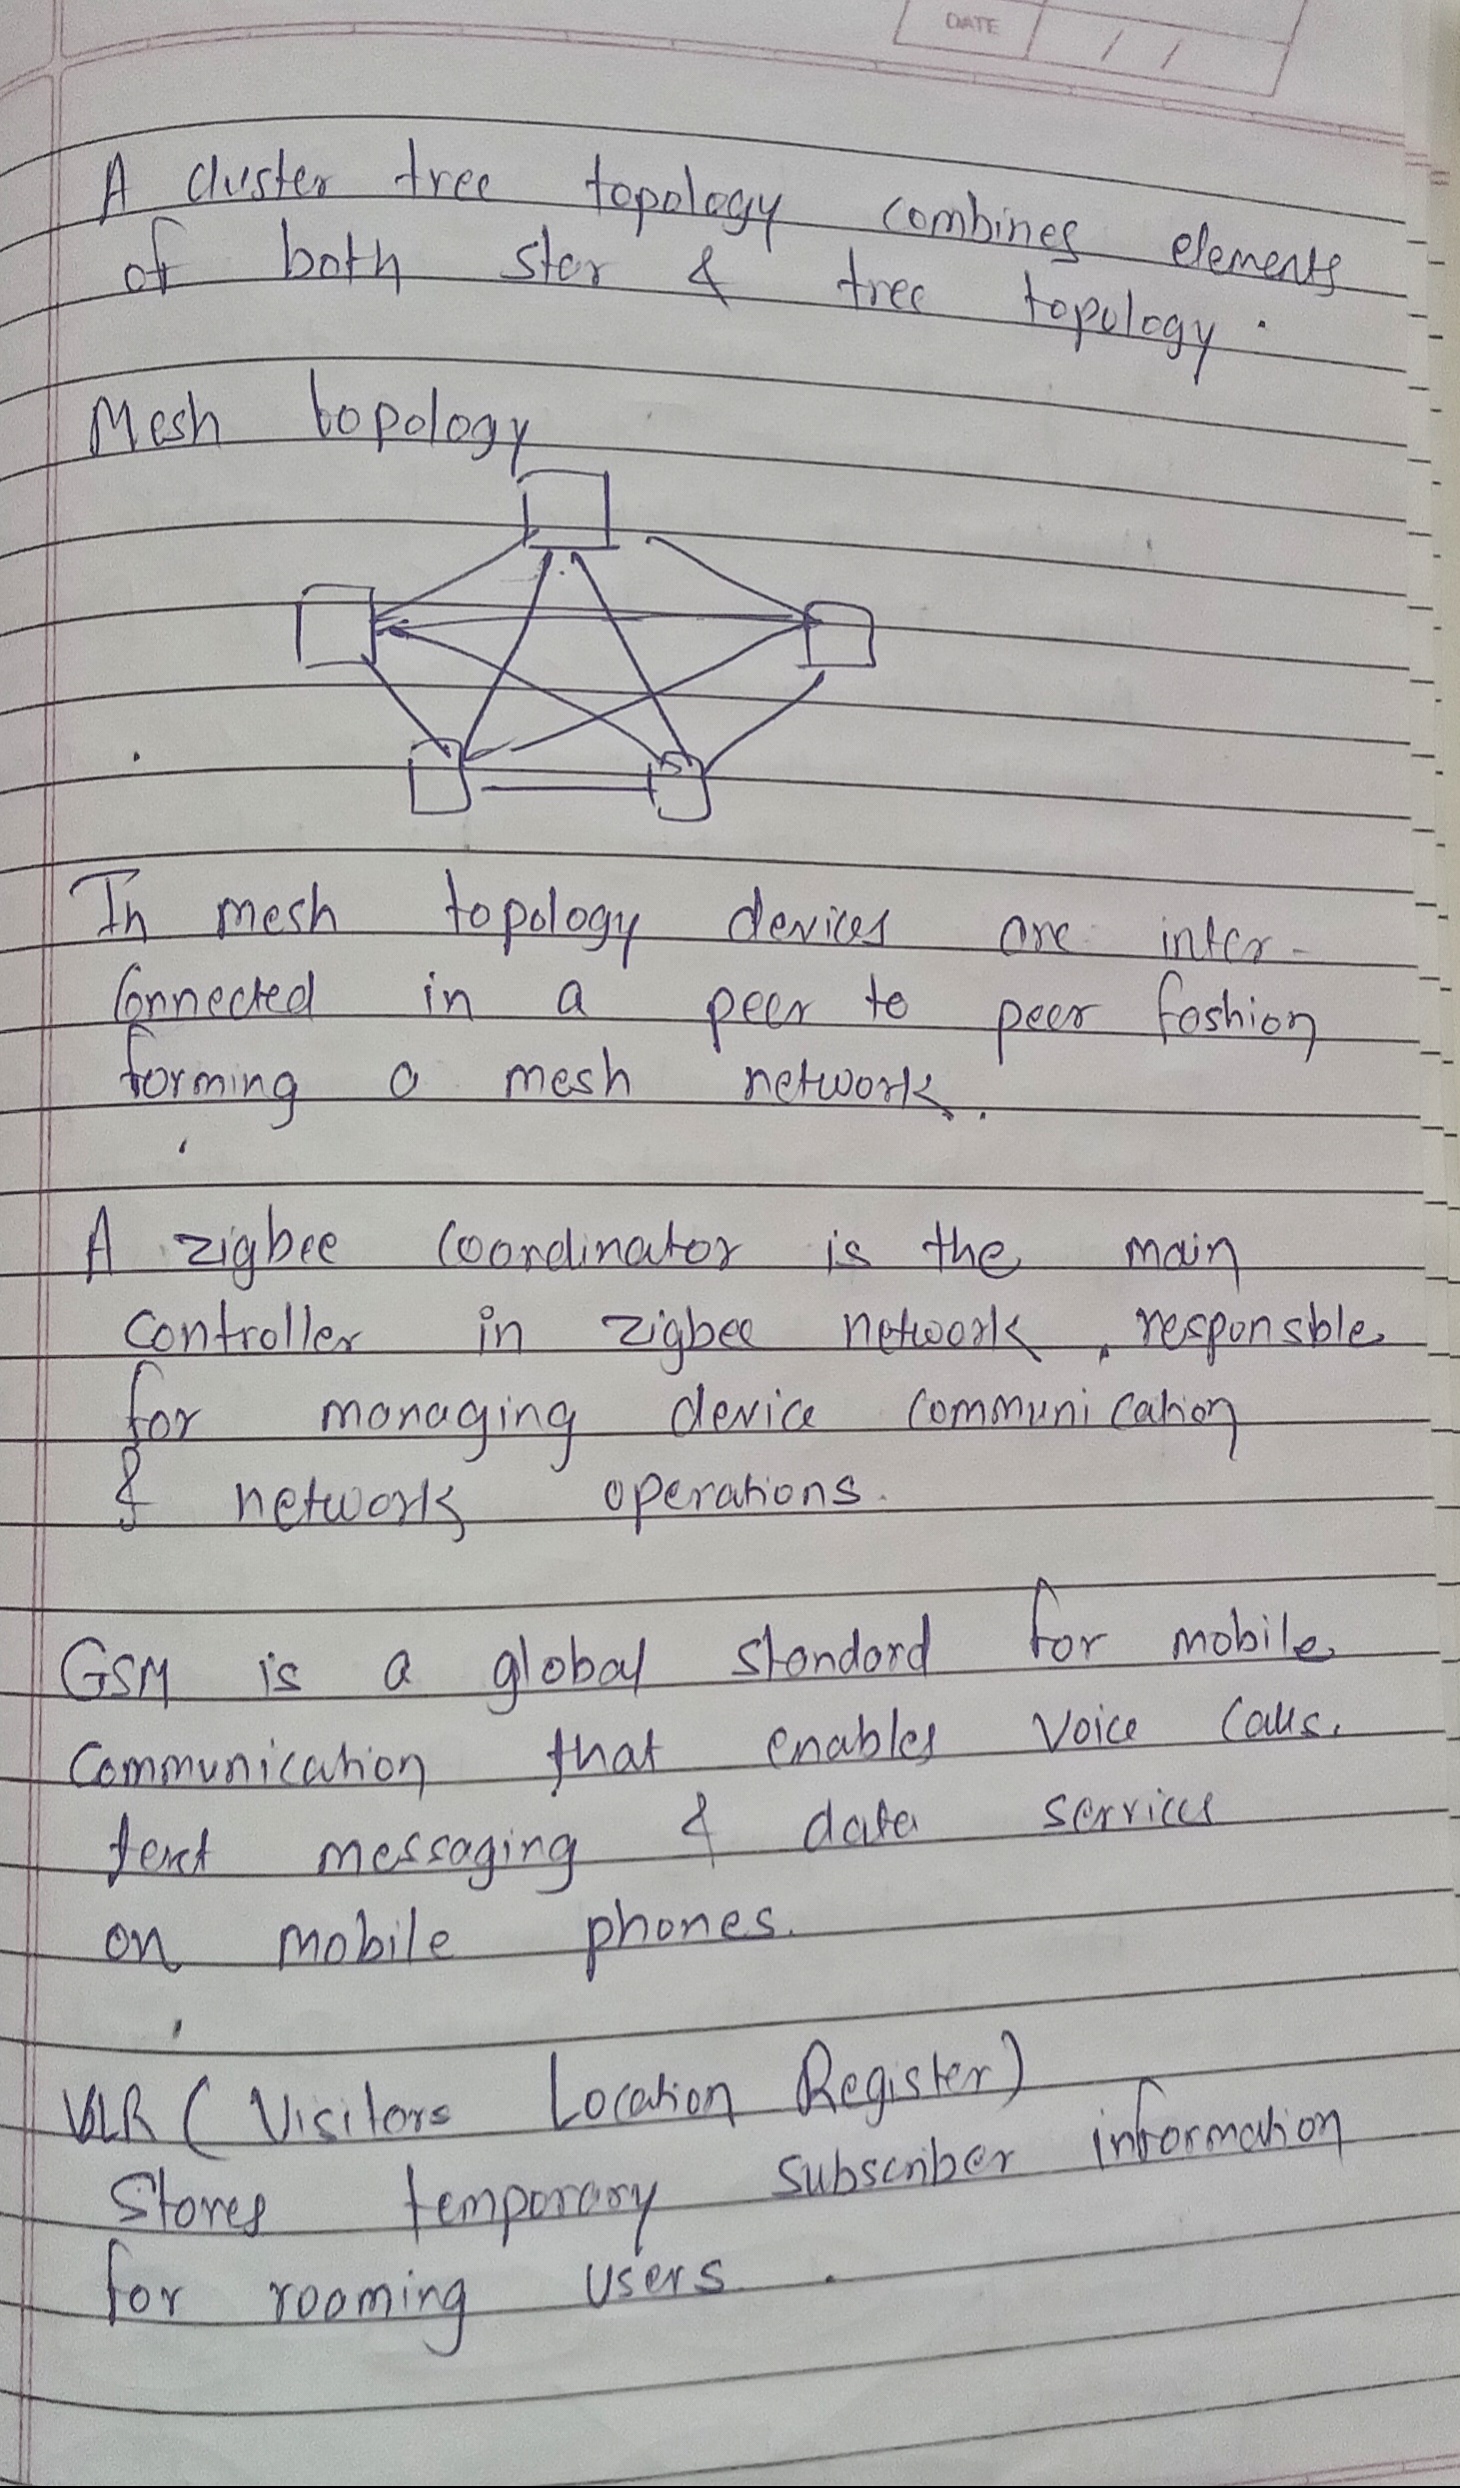 DATE / /
A cluster tree topology combines elements
of both star & tree topology.
Mesh topology
In mesh topology devices are inter-
connected in a peer to peer fashion
forming a mesh network.
A zigbee coordinator is the main
controller in zigbee network, responsble
for managing device communication
& network operations.
GSM is a global standard for mobile
communication that enables voice calls,
text messaging & data services
on mobile phones.
VLR (Visitors Location Register)
Stores temporary subscriber information
for roaming users.